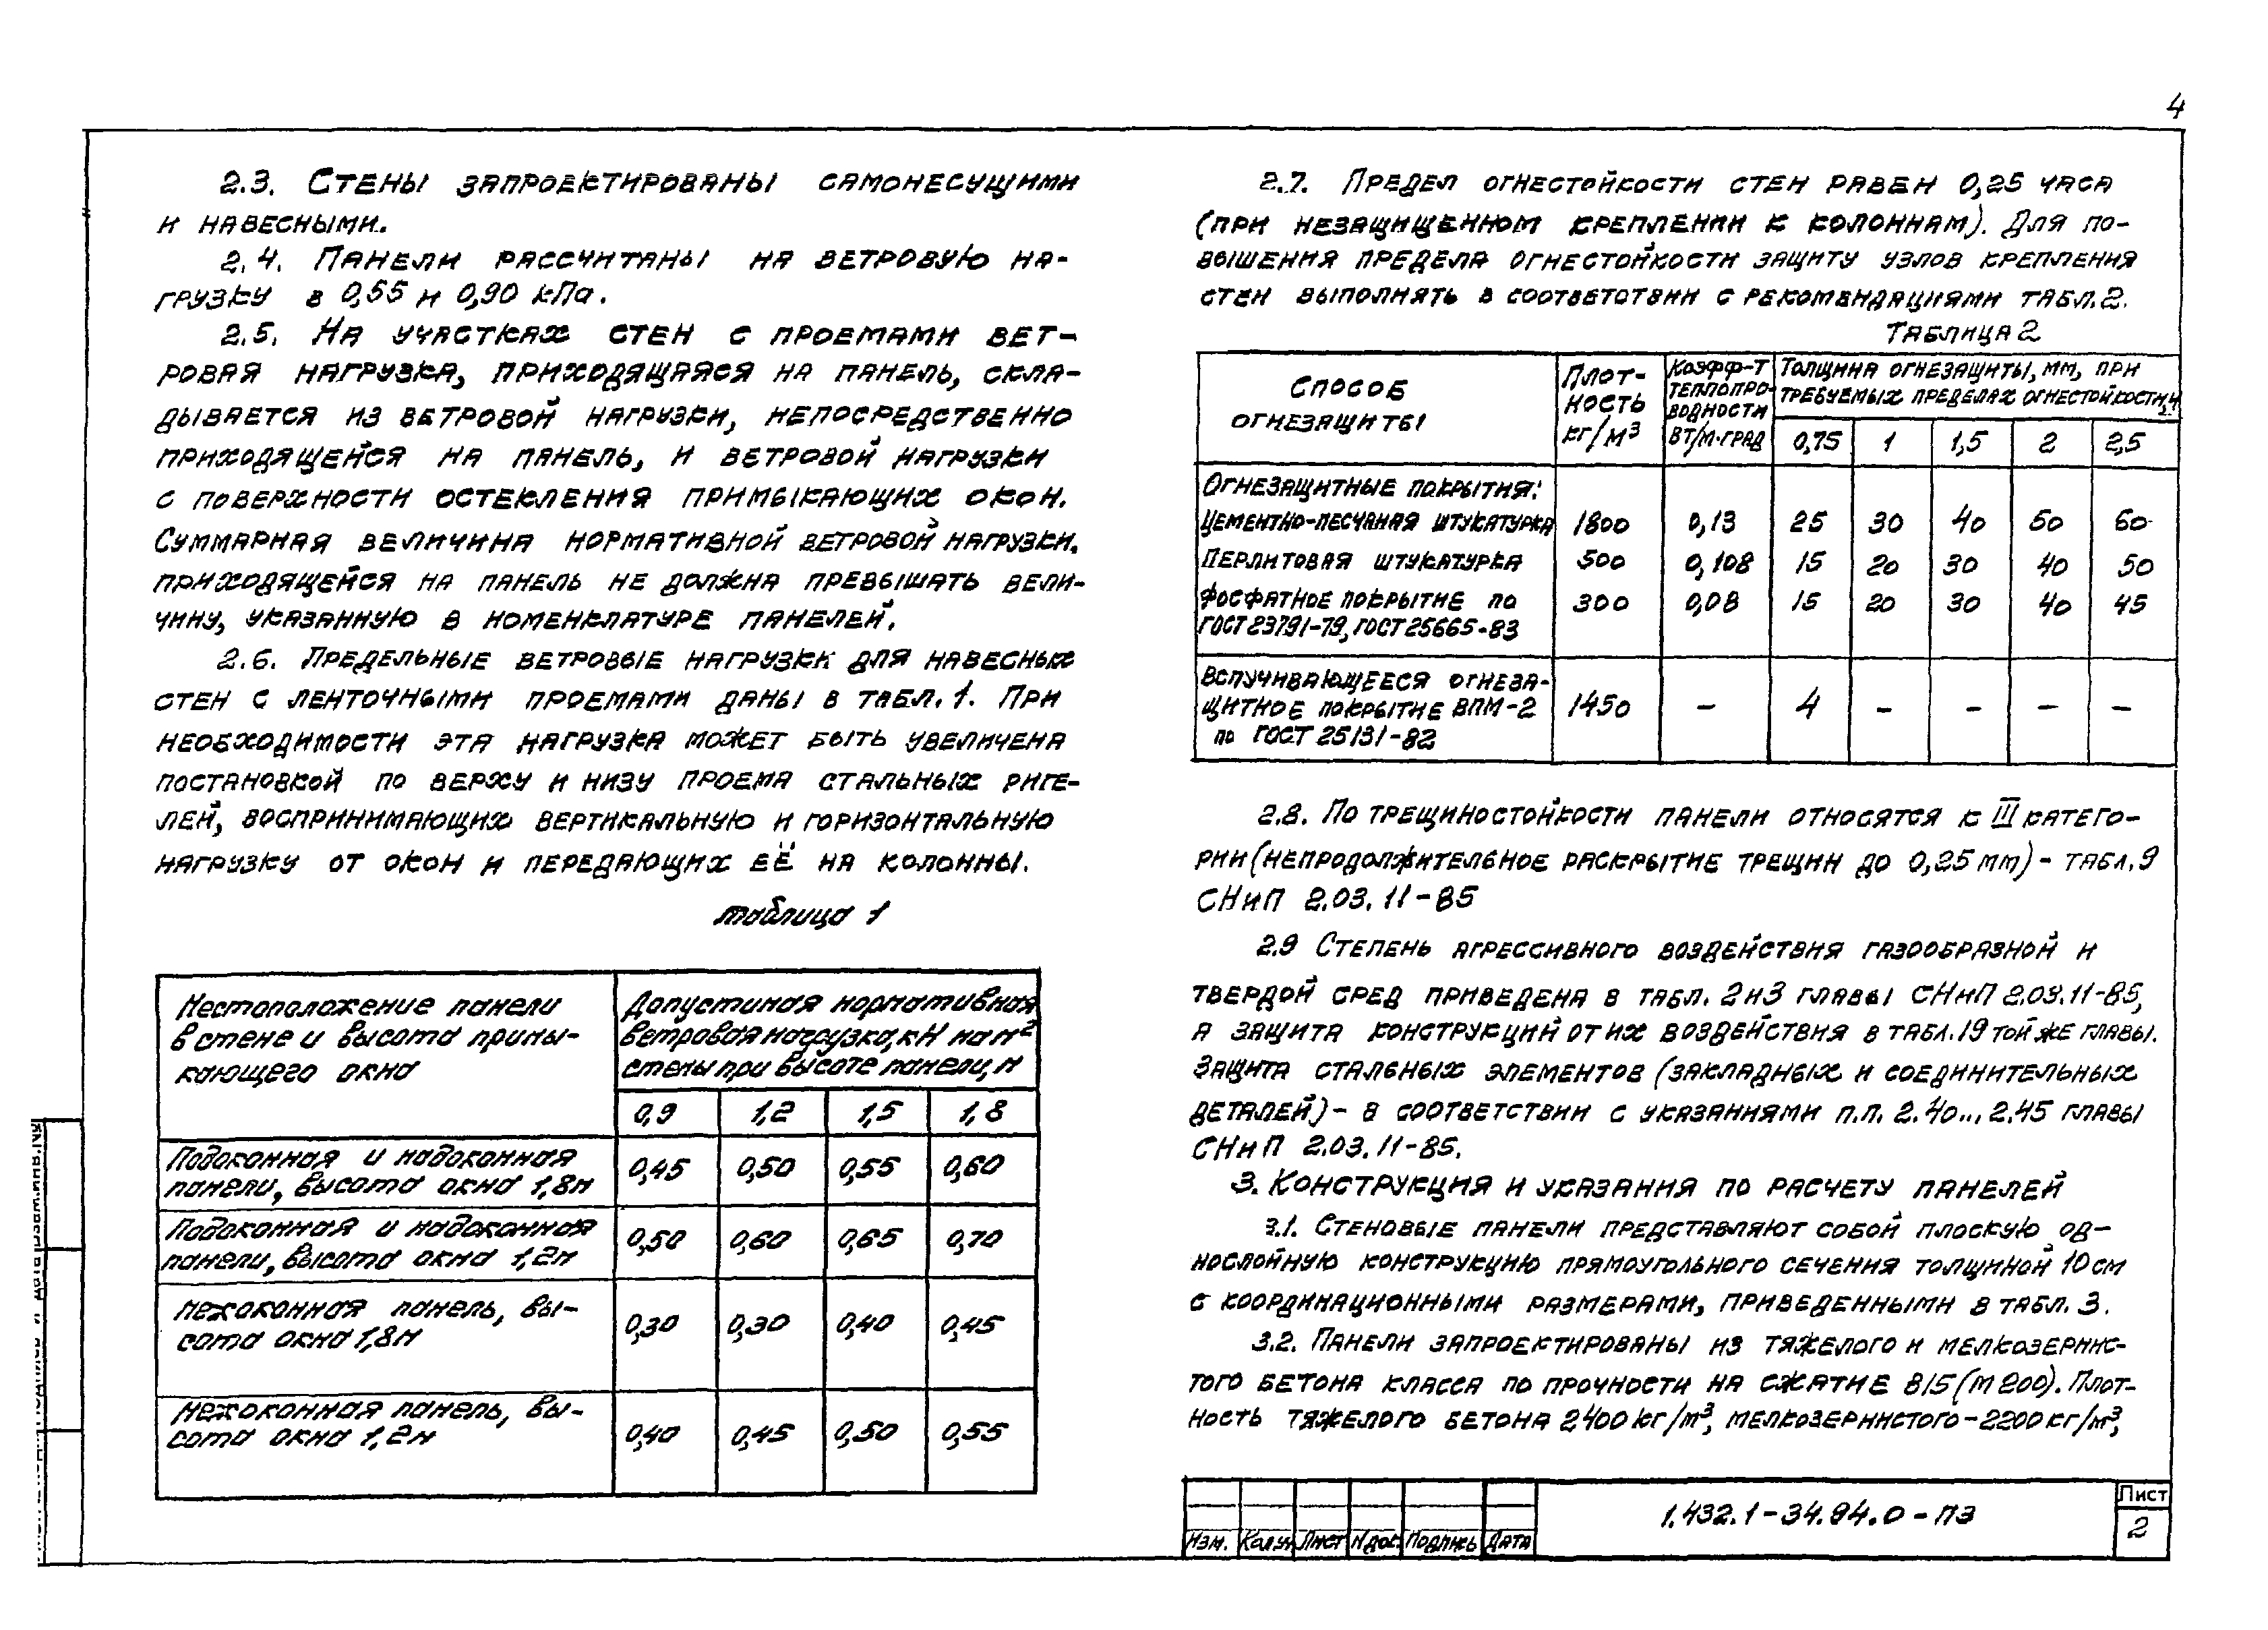 4
2.3. Стены запроектированы самонесущими
и навесными.
2.4. Панели рассчитаны на ветровую на-
грузку в 0,55 и 0,90 кПа.
2.5. На участках стен с проемами вет-
ровая нагрузка, приходящаяся на панель, скла-
дывается из ветровой нагрузки, непосредственно
приходящейся на панель, и ветровой нагрузки
с поверхности остекления примыкающих окон.
Суммарная величина нормативной ветровой нагрузки,
приходящейся на панель не должна превышать вели-
чину, указанную в номенклатуре панелей.
2.6. Предельные ветровые нагрузки для навесных
стен с ленточными проемами даны в табл. 1. При
необходимости эта нагрузка может быть увеличена
постановкой по верху и низу проема стальных риге-
лей, воспринимающих вертикальную и горизонтальную
нагрузку от окон и передающих её на колонны.
Таблица 1
Местоположение панели
в стене и высота примы-
кающего окна
Допустимая нормативная
ветровая нагрузка, кН на м²
стены при высоте панели, м
0,9 1,2 1,5 1,8
Подоконная и надоконная
панели, высота окна 1,8м 0,45 0,50 0,55 0,60
Подоконная и надоконная
панели, высота окна 1,2м 0,50 0,60 0,65 0,70
Межоконная панель, вы-
сота окна 1,8м 0,30 0,30 0,40 0,45
Межоконная панель, вы-
сота окна 1,2м 0,40 0,45 0,50 0,55
2.7. Предел огнестойкости стен равен 0,25 часа
(при незащищенном креплении к колоннам). Для по-
вышения предела огнестойкости защиту узлов крепления
стен выполнять в соответствии с рекомендациями табл. 2.
Таблица 2
Способ
огнезащиты
Плот-
ность
кг/м³
Коэфф-т
теплопро-
водности
Вт/м·град
Толщина огнезащиты, мм, при
требуемых пределах огнестойкости, ч
0,75 1 1,5 2 2,5
Огнезащитные покрытия:
Цементно-песчаная штукатурка 1800 0,13 25 30 40 50 60
Перлитовая штукатурка 500 0,108 15 20 30 40 50
Фосфатное покрытие по 300 0,08 15 20 30 40 45
ГОСТ 23791-79, ГОСТ 25665-83
Вспучивающееся огнеза-
щитное покрытие ВПМ-2 1450 – 4 – – – –
по ГОСТ 25131-82
2.8. По трещиностойкости панели относятся к III катего-
рии (непродолжительное раскрытие трещин до 0,25 мм) - табл. 9
СНиП 2.03.11-85
2.9 Степень агрессивного воздействия газообразной и
твердой сред приведена в табл. 2 и 3 главы СНиП 2.03.11-85,
а защита конструкций от их воздействия в табл. 19 той же главы.
Защита стальных элементов (закладных и соединительных
деталей) - в соответствии с указаниями п.п. 2.40... 2.45 главы
СНиП 2.03.11-85.
3. Конструкция и указания по расчету панелей
3.1. Стеновые панели представляют собой плоскую од-
нослойную конструкцию прямоугольного сечения толщиной 10 см
с координационными размерами, приведенными в табл. 3.
3.2. Панели запроектированы из тяжелого и мелкозернис-
того бетона класса по прочности на сжатие В15 (М200). Плот-
ность тяжелого бетона 2400 кг/м³, мелкозернистого - 2200 кг/м³,
Изм. Кол.уч Лист №док. Подпись Дата
1.432.1-34.94.0-ПЗ
Лист
2